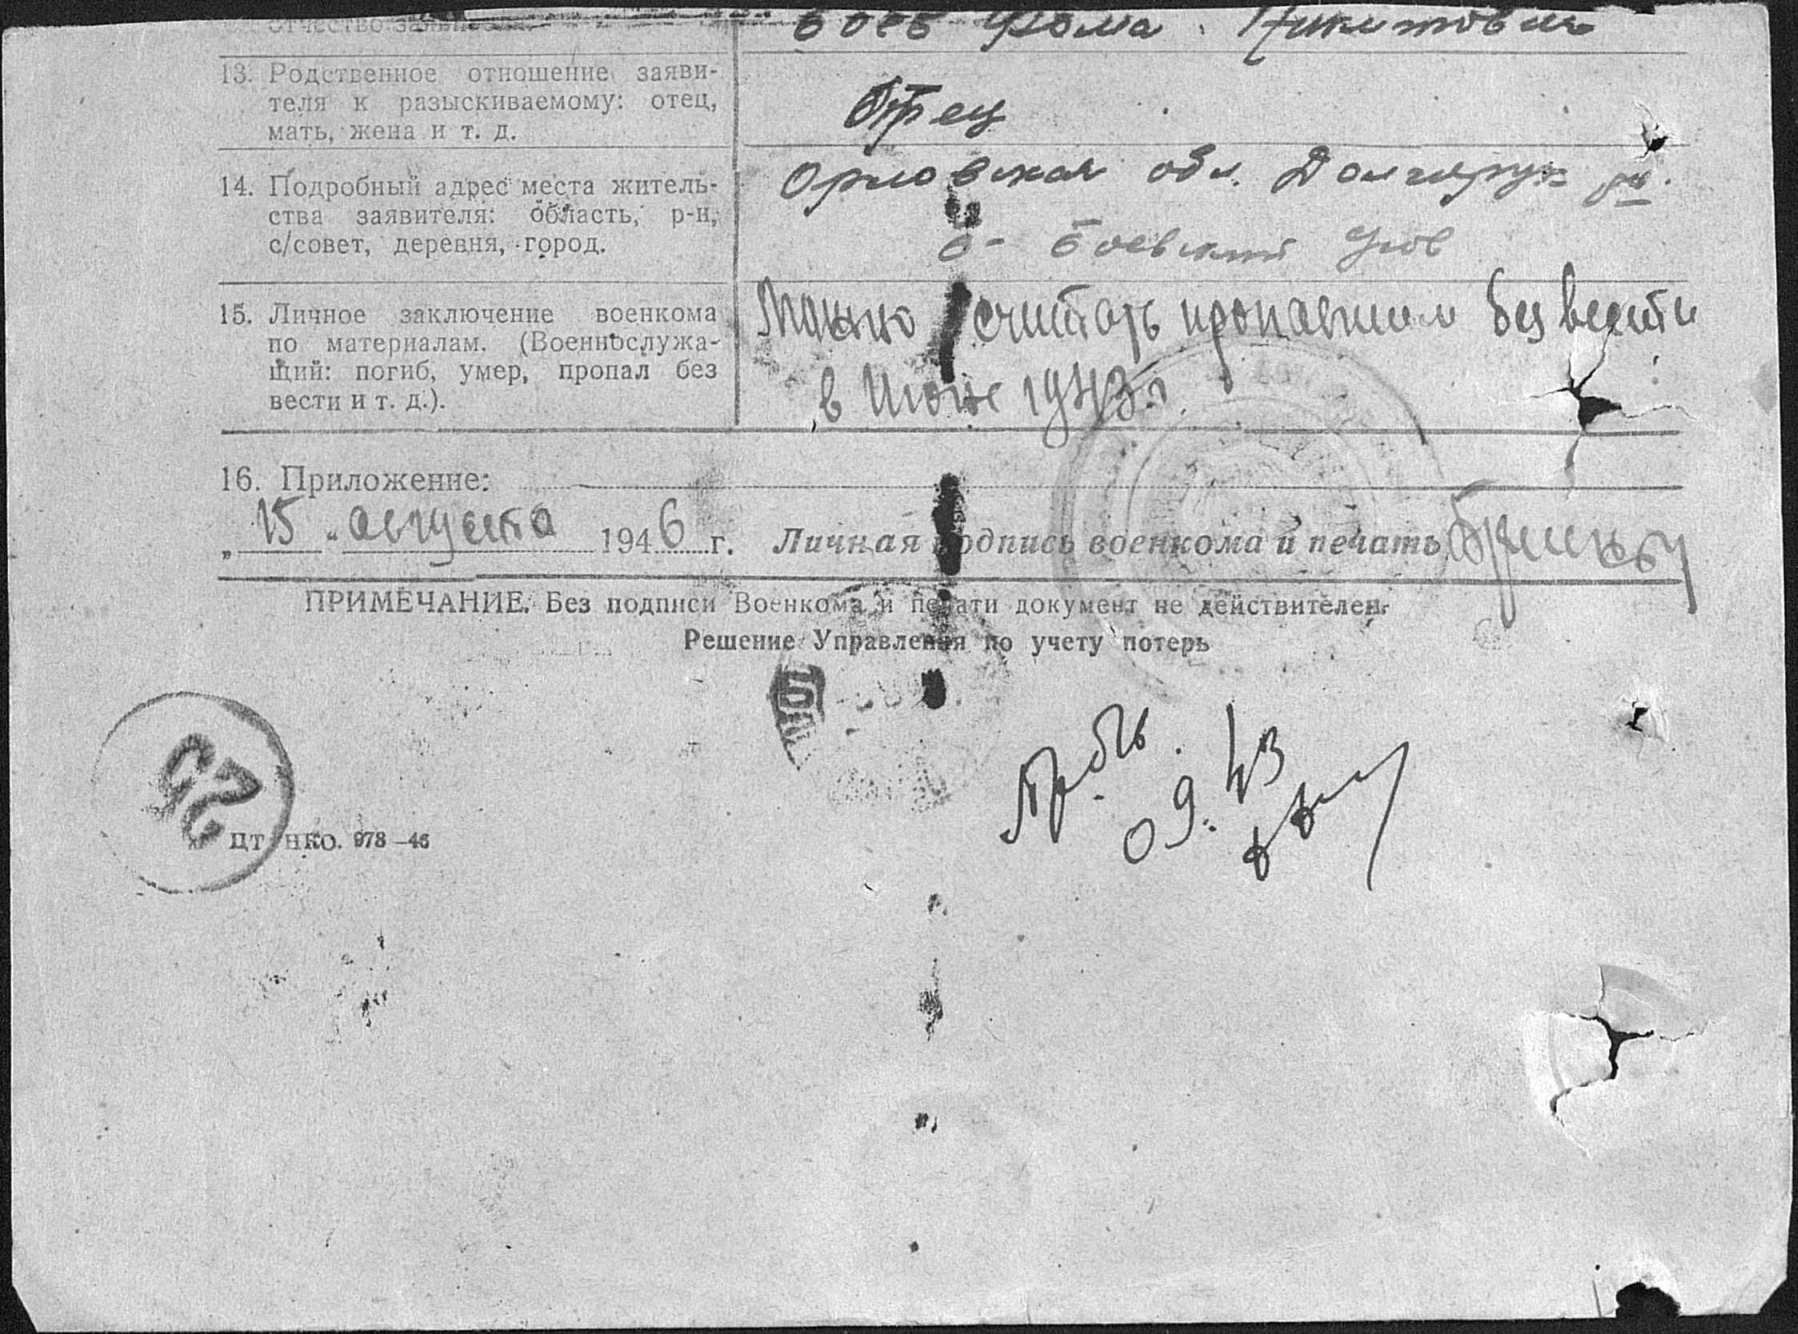 отчество заявителя. Боев Фома Никитович
13. Родственное отношение заяви-
теля к разыскиваемому: отец,
мать, жена и т. д.
Отец
14. Подробный адрес места житель-
ства заявителя: область, р-н,
с/совет, деревня, город.
Орловская обл. Долгорук
Боевский
15. Личное заключение военкома
по материалам. (Военнослужа-
щий: погиб, умер, пропал без
вести и т. д.).
Можно считать пропавшим без вести
в 1943 г.
16. Приложение:
„15“ августа 1946 г. Личная подпись военкома и печать
ПРИМЕЧАНИЕ. Без подписи Военкома и печати документ не действителен.
Решение Управления по учету потерь
09.43
25
ЦТ НКО. 978—46